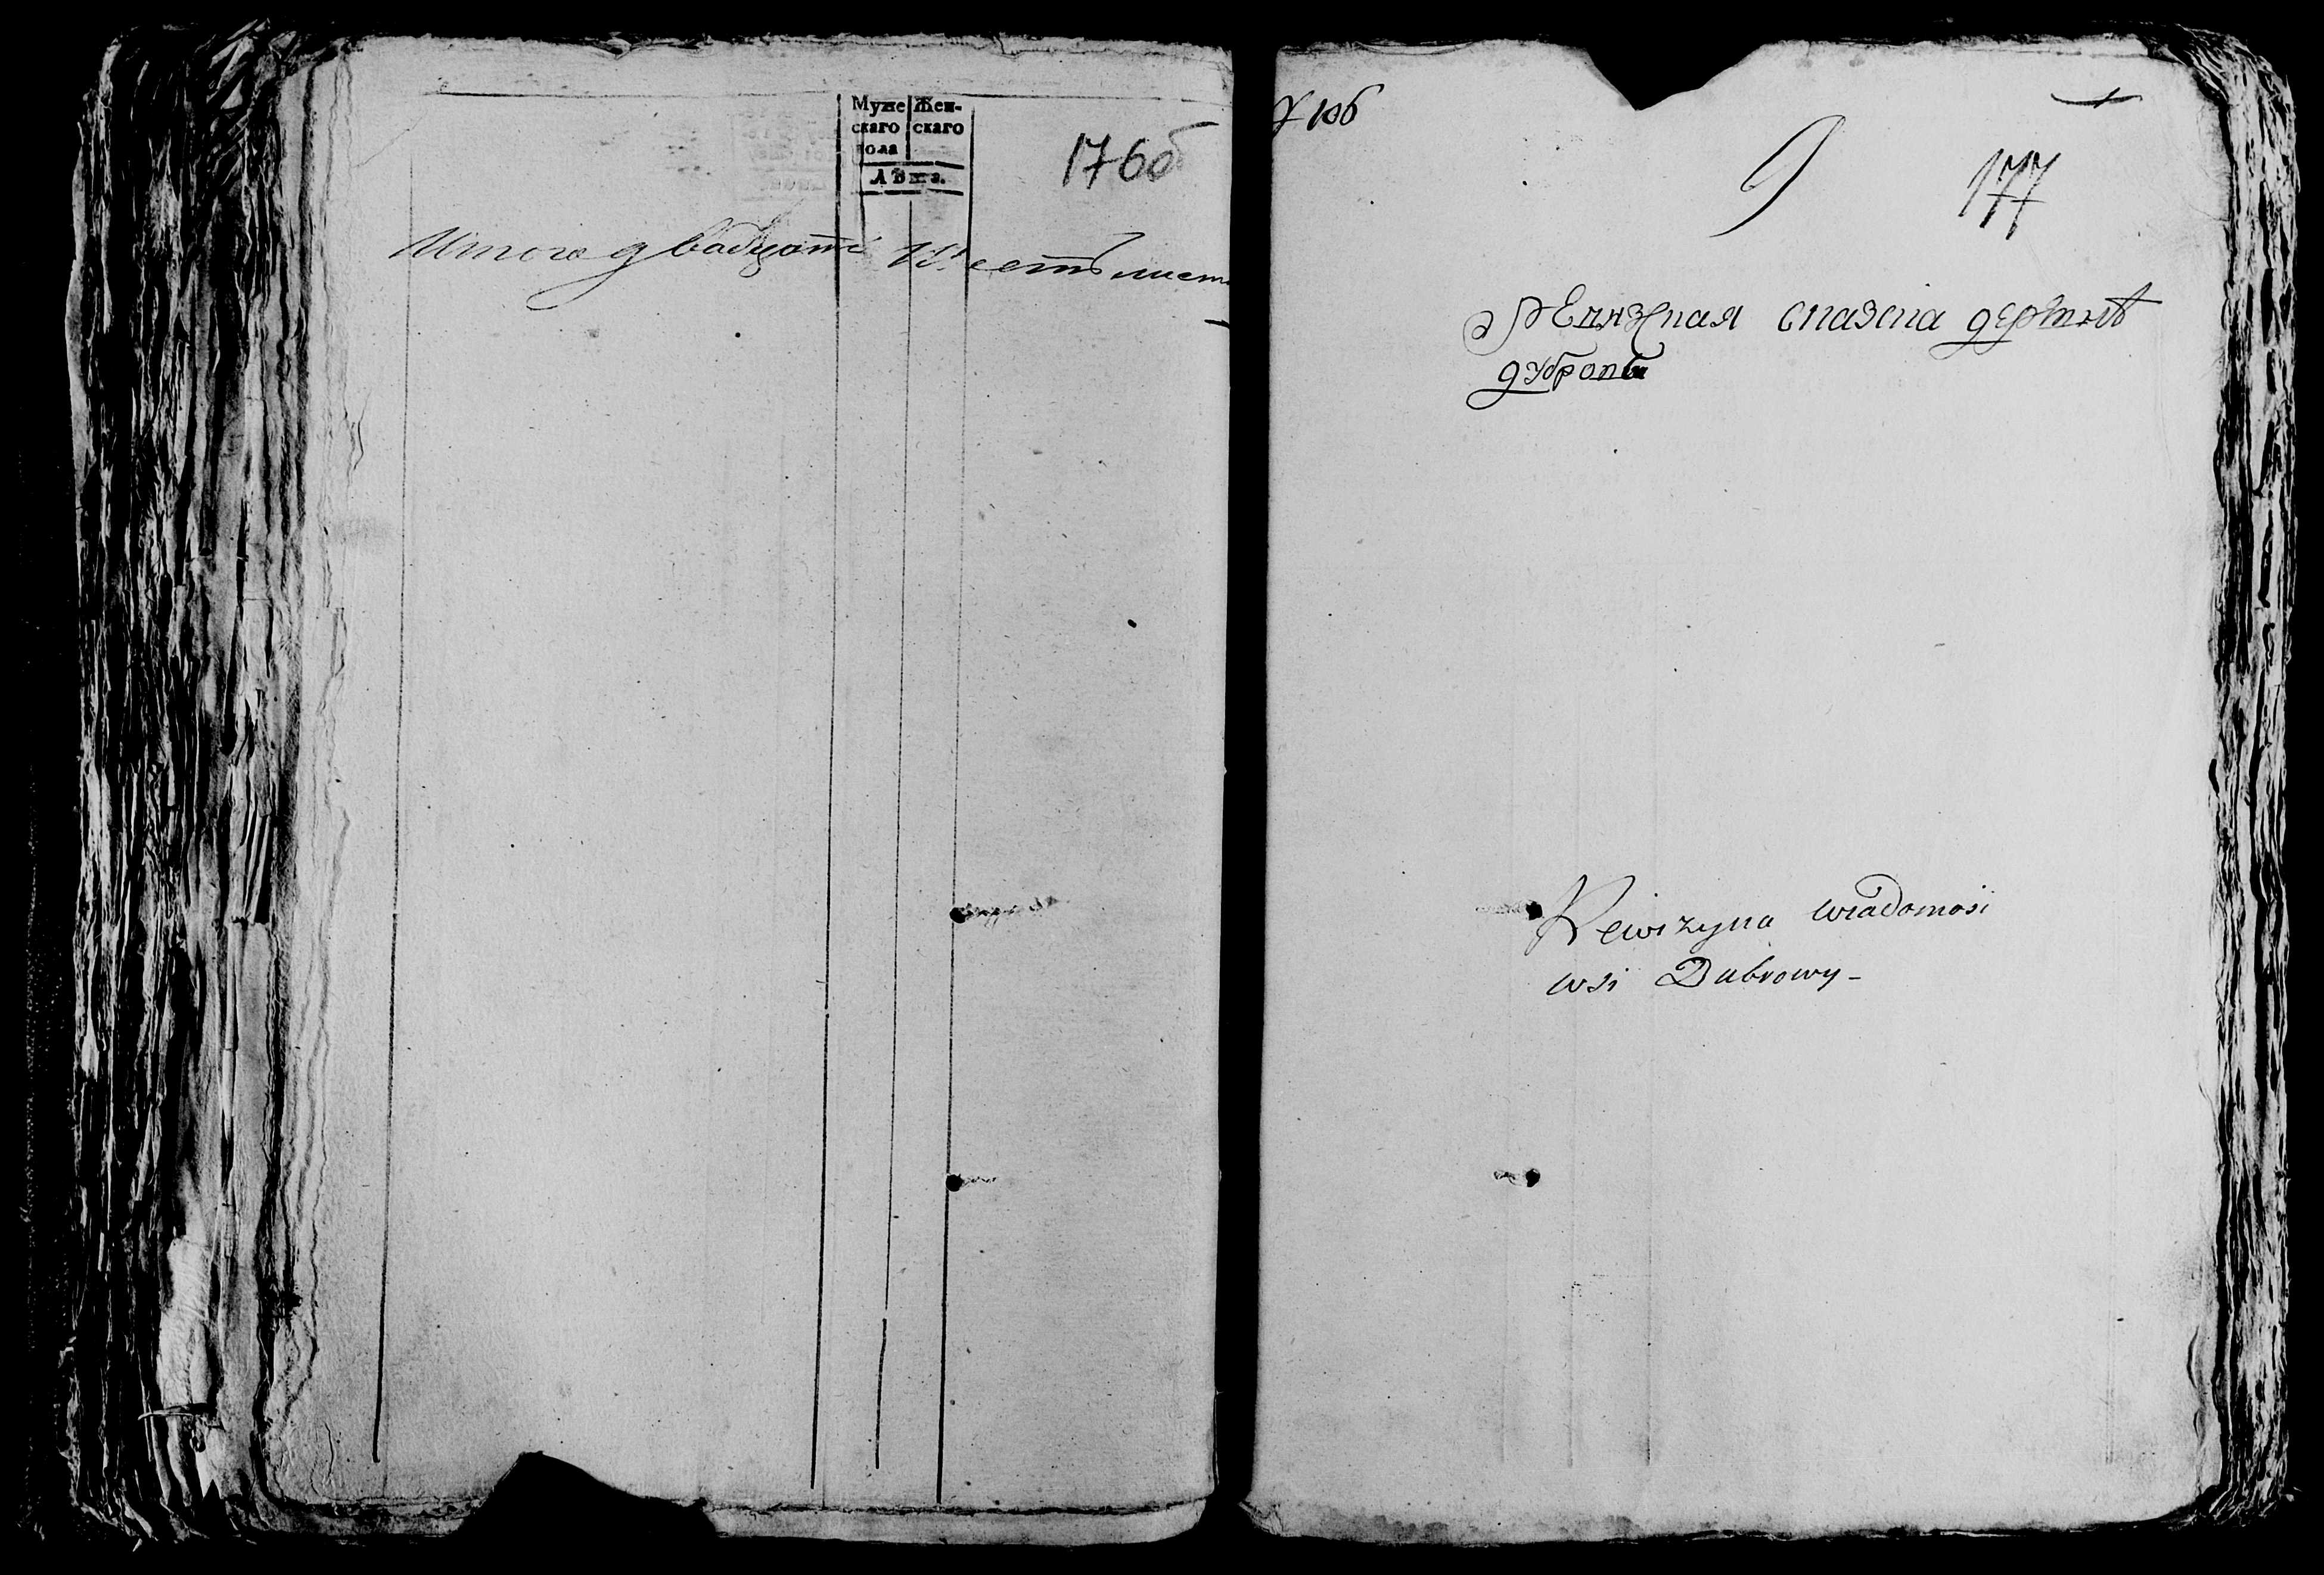 Муже Жен-
скаго скаго
пола
Лѣта.
176об
Итого двадцать шесть лист
9
177
Ревизская сказка деревнѣ
дубровы
Rewizyna wiadomosi
wsi Dubrowy -